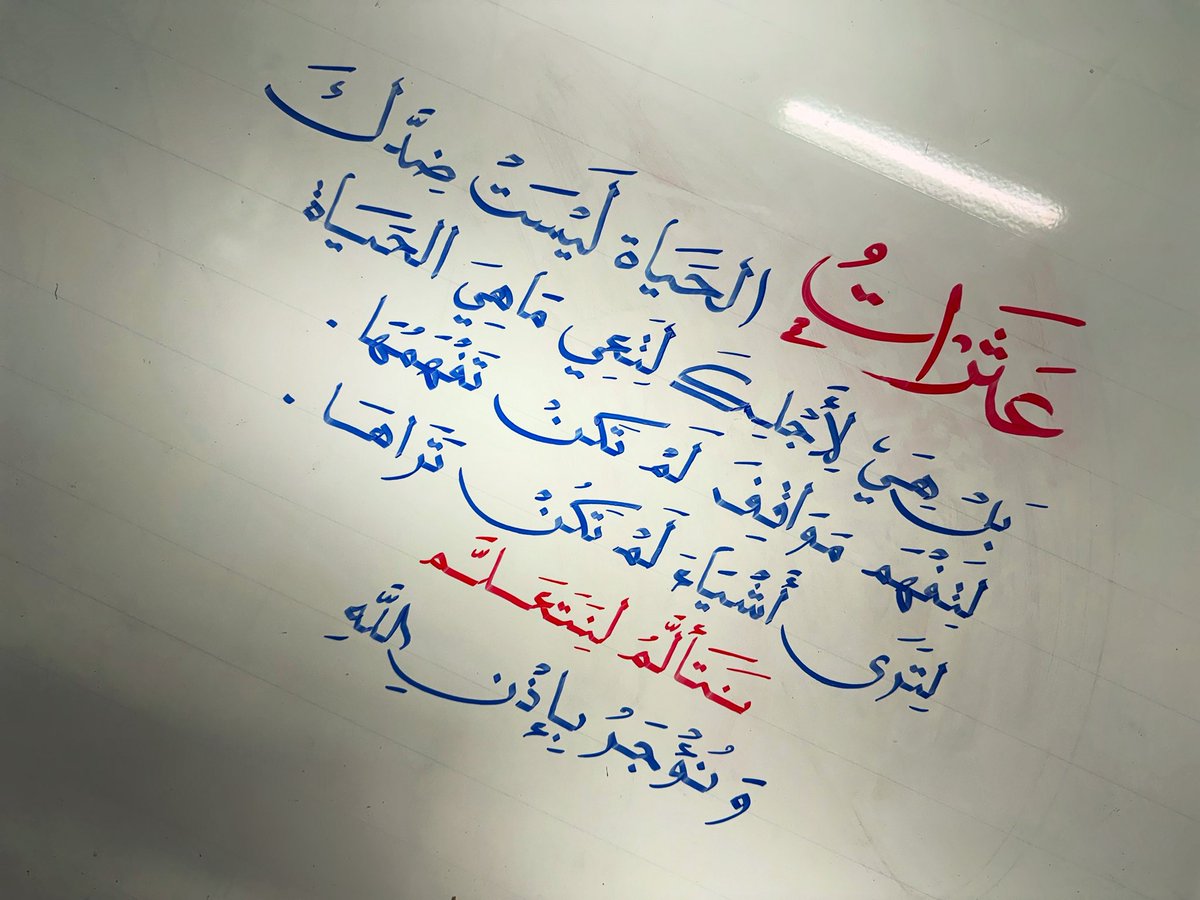 عَثَرَاتُ الحَيَاة لَيْسَتْ ضِدَّكَ
بَلْ هِيَ لِأَجْلِكَ لِتَعِي مَاهِيَ الحَيَاة
لِتَفْهَم مَوَاقِفَ لَمْ تَكُنْ تَفْهَمُهَا.
لِتَرَى أَشْيَاءَ لَمْ تَكُنْ تَرَاهَا.
نَتَأَلَّمُ لِنَتَعَلَّم
وَ نُؤْجَرُ بِإِذْنِ اللَّهِ